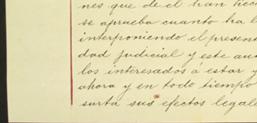 nes que de él han hech
se aprueba cuanto ha l
interponiendo el present
dad judicial y este au
los interesados a estar y
ahora y en todo tiempo
surta sus efectos legale